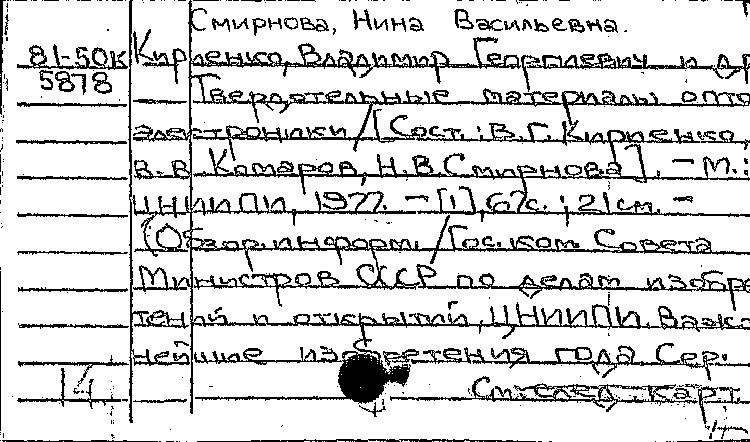 Смирнова, Нина Васильевна.
81-50к Кириенко, Владимир Георгиевич и др
5878
Твердотельные материалы опто
электроники / [Сост.: В.Г. Кириенко,
В.В. Комаров, Н.В. Смирнова]. - М.:
ЦНИИПИ, 1977. - [1], 67с.; 21см. -
(Обзор. информ. / Гос. ком. Совета
Министров СССР по делам изобре
тений и открытий, ЦНИИПИ. Важ
нейшие изобретения года. Сер.
14
См. след. карт.